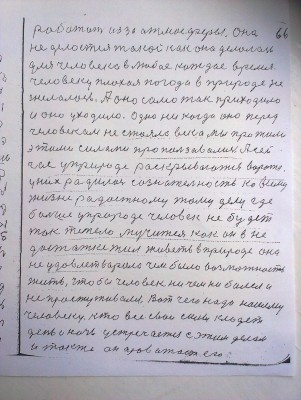 66
работат из за атмосферы. Она
не делостся такой как она делолась
для человека в любое каждае время.
человеку плохая погода в природе не
желалось. А оно само так приходило
и оно уходило. Одно ни когда оно перед
человекам не стояло века мы прожили
этими силами прополза вмиц А сей-
час у природе раскрывають ворота,
у них радилась сознательность ко всему
жизне радостному таму делу где
больше у природе человек не будет
так тяжело мучится как он в не
достатке жил живеть в природе она
не удовлетварило чем было возможность
жить, чтобы человек ни чем ни болел и
не простуживался. Вот чего надо нашему
человеку, кто все свои силы кладет
день и ночь устречается с этим делом
и также он провожает его: